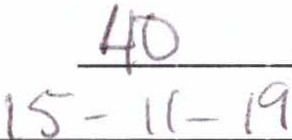 40
15-11-19